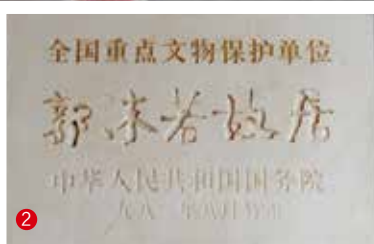 全国重点文物保护单位
郭沫若故居
中华人民共和国国务院
2